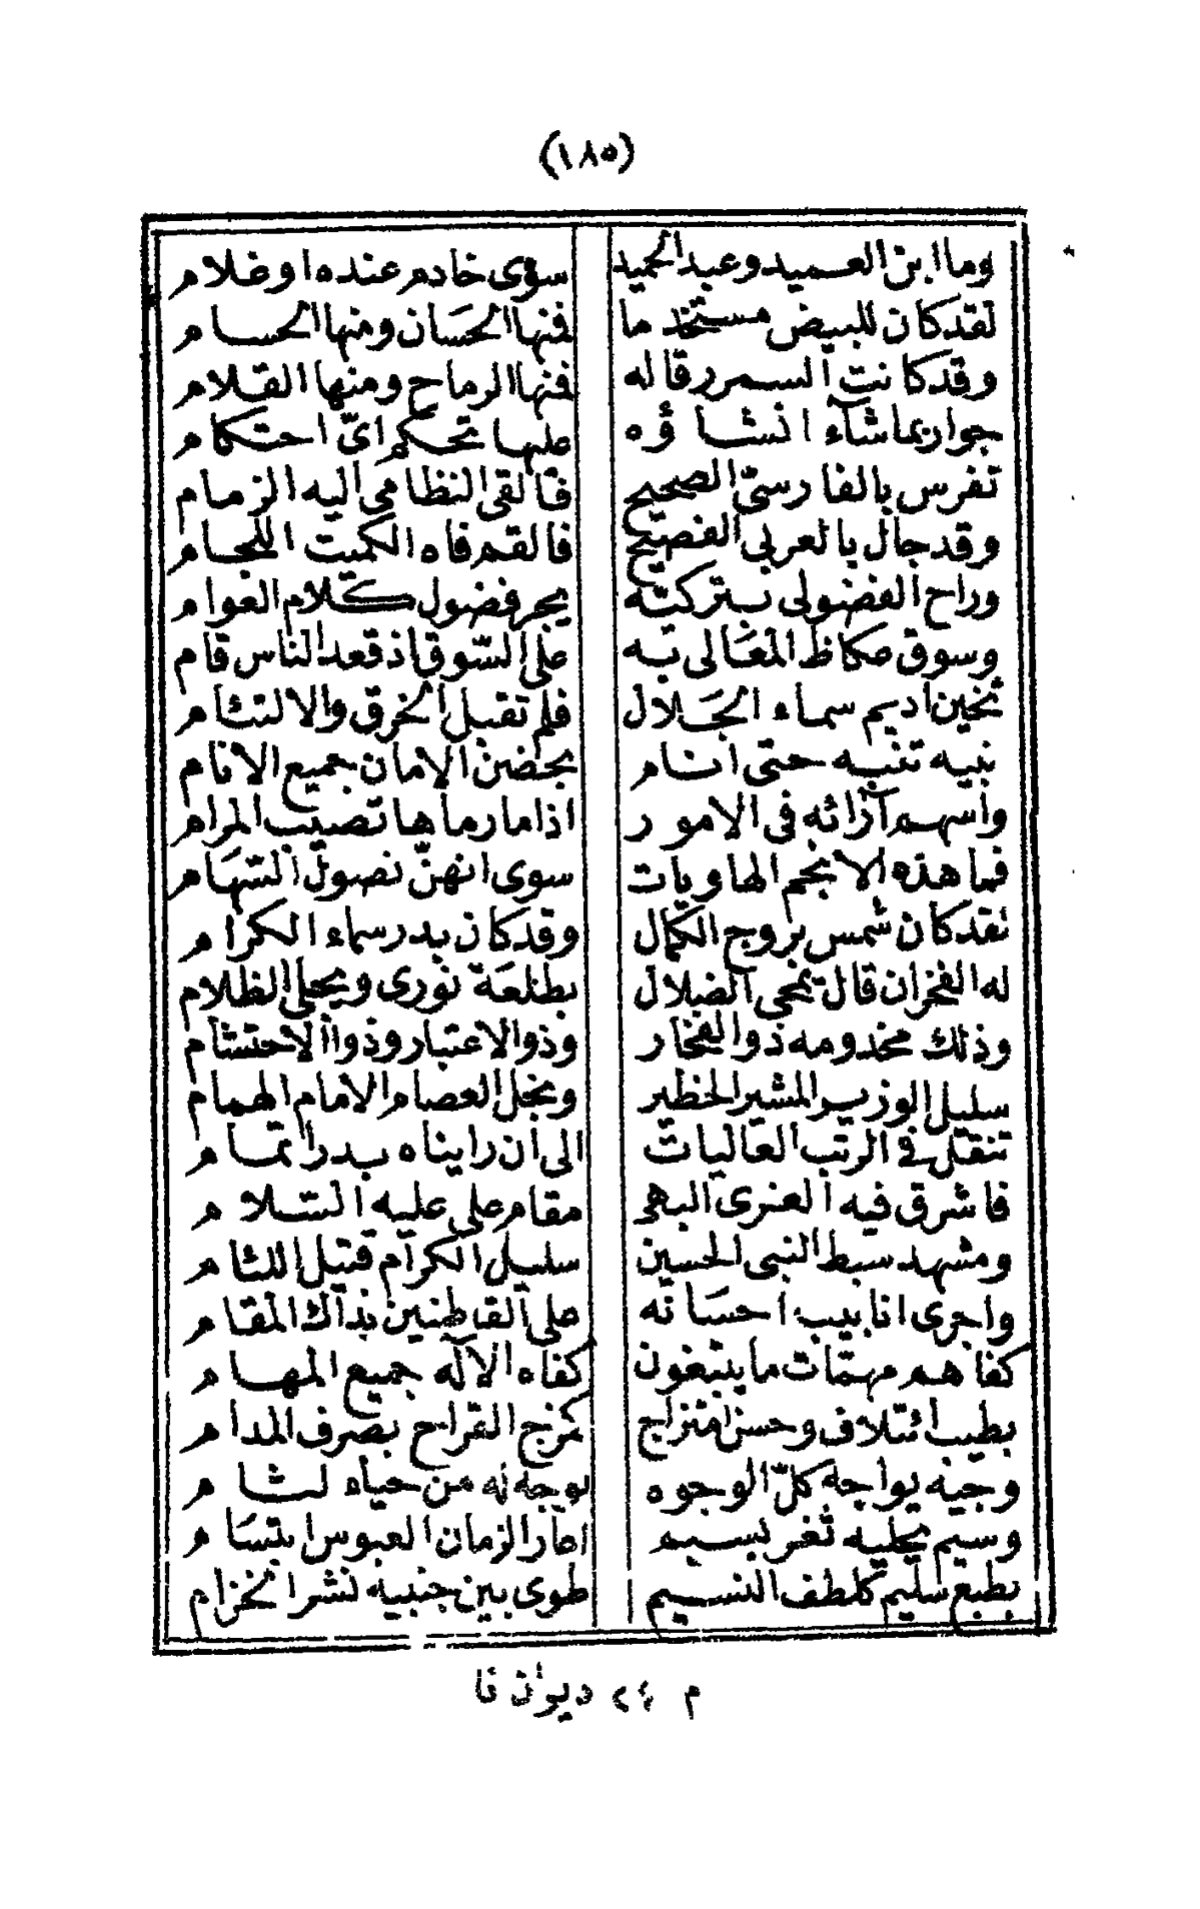 (١٨٥)
وما ابن العميد وعبد الحميد سوى خادم عنده او غلام
لقد كان للبيض مستخذما فمنها الحسان ومنها الحسام
وقد كانت السمر رقا له فمنها الرماح ومنها القلام
جوار بما شآء انشاؤه عليها تحكم اىّ احتكام
تفرس بالفارسىّ الصحيح فالقى النظامى اليه الزمام
وقد جال بالعربى الفصيح فالقم فاه الكميت اللجام
وراح الفضولى بتركيّه يجر فضول كلام العوام
وسوق عكاظ المعالى به على السّوق اذ قعد الناس قام
ثخين اديم سماء الجلال فلم تقبل الخرق والالتئام
نبيه تنبه حتى انام بحضن الامان جميع الانام
واسهم آرائه فى الامور اذا ما رماها تصيب المرام
فما هذه الانجم الهاويات سوى انهنّ نصول السهام
لقد كان شمس بروج الكمال وقد كان بدر سماء الكرام
له الفخر ان قال يمحى الضلال بطلعة نورى ويجلى الظلام
وذلك مخدومه ذو الفخار وذو الاعتبار وذو الاحتشام
سليل الوزير المشير الخطير ونجل العصام الامام الهمام
تنقل فى الرتب العاليات الى ان رايناه بدرا تمام
فاشرق فيه الغرى البهى مقام على عليه السلام
ومشهد سبط النبى الحسين سليل الكرام قتيل اللئام
واجرى انابيب احسانه على القاطنين بذاك المقام
كفاهم مهمّات ما يبتغون كفاه الآله جميع المهام
بطيب ائتلاف وحسن امتزاج كمزج القراح بصرف المدام
وجيه يواجه كلّ الوجوه بوجه له من حياء لثام
وسيم يحليه ثغر بسيم اعار الزمان العبوس ابتسام
بطبع سليم كلطف النسيم طوى بين جنبيه نشر الخزام
م ٢٤ ديوان فا